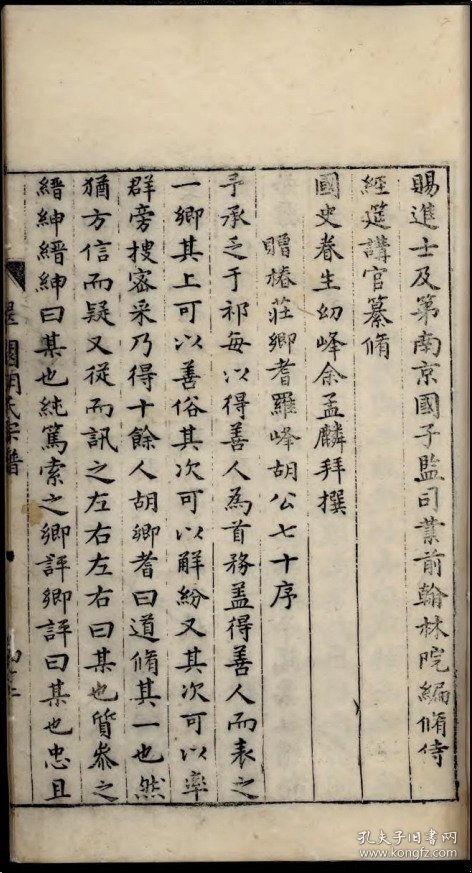 賜進士及第南京國子監司業前翰林院編脩侍
經筵講官纂脩
國史眷生幼峰余孟麟拜撰
贈椿莊鄉耆羅峰胡公七十序
予承乏于祁每以得善人為首務盖得善人而表之
一鄉其上可以善俗其次可以解紛又其次可以率
群旁搜宻采乃得十餘人胡鄉耆曰道脩其一也然
猶方信而疑又從而訊之左右左右曰某也質叅之
縉紳縉紳曰某也純篤索之鄉評鄉評曰某也忠且
國胡氏宗譜
孔夫子旧书网
www.kongfz.com